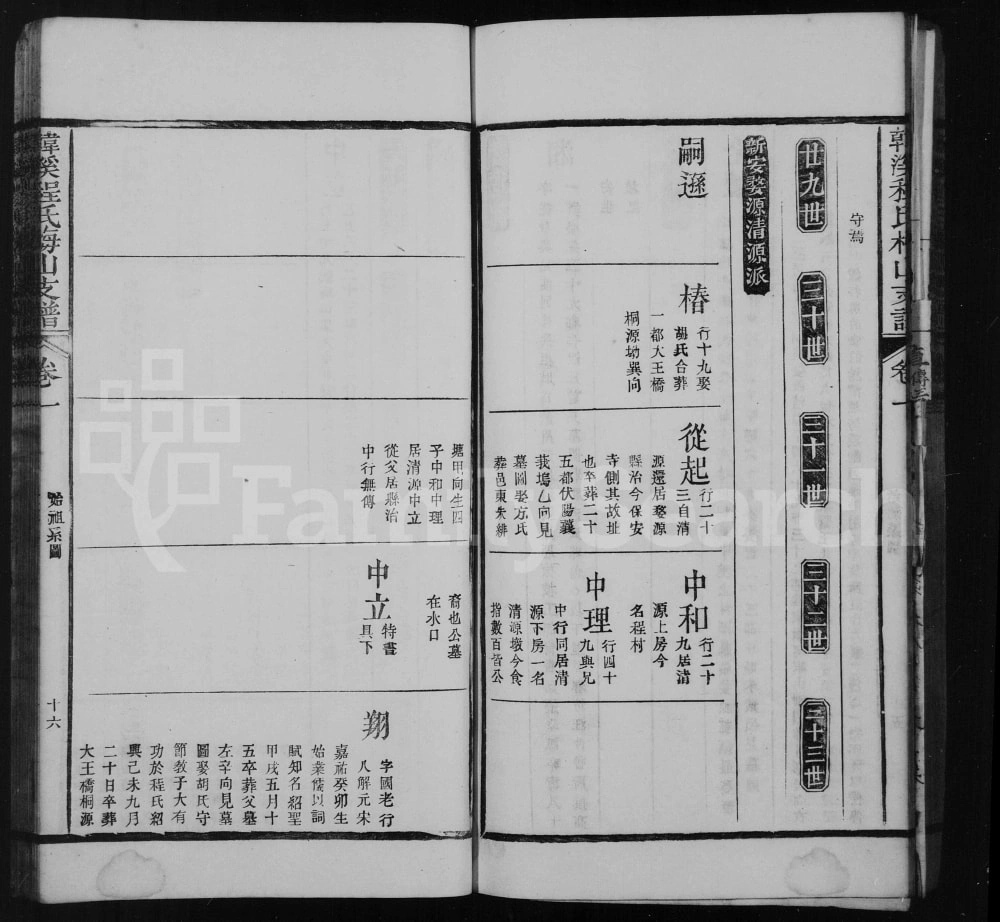 韓溪程氏梅山支譜
卷一
守焉
廿九世
三十世
三十一世
三十二世
三十三世
新安婺源清源派
嗣遜
椿
行十九娶
胡氏合葬
一都大王橋
桐源坳巽向
從起
行二十
三自清
源還居婺源
縣治今保安
寺側其故址
也卒葬二十
五都伏陽襄
莪塢乙向見
墓圖娶方氏
葬邑東朱緋
塘甲向生四
子中和中理
居清源中立
從父居縣治
中行無傳
中和
行二十
九居清
源上房今
名程村
中理
行四十
九與兄
中行同居清
源下房一名
清源墩今食
指數百皆公
裔也公墓
在水口
中立
特書
具下
翔
字國老行
八解元宋
嘉祐癸卯生
始業儒以詞
賦知名紹聖
甲戌五月十
五卒葬父墓
左辛向見墓
圖娶胡氏守
節教子大有
功於程氏紹
興己未九月
二十日卒葬
大王橋桐源
韓溪程氏梅山支譜
卷一
始祖系圖
十六
FamilySearch